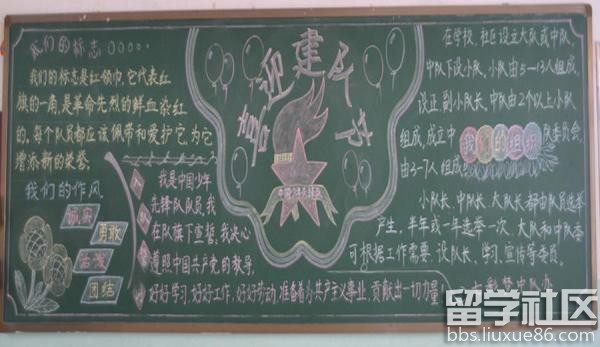 我们的标志
我们的标志是红领巾,它代表红
旗的一角,是革命先烈的鲜血染红
的,每个队员都应该佩带和爱护它,为它
增添新的荣誉。
我们的作风
诚实
勇敢
活泼
团结
喜迎建队节
中国少年先锋队
我是中国少年
先锋队队员我
在队旗下宣誓,我决心
遵照中国共产党的教导,
好好学习,好好工作,好好劳动,准备着为共产主义事业,贡献出一切力量!
在学校、社区设立大队或中队,
中队下设小队。小队由5-13人组成,
设正副小队长。中队由2个以上小队
组成,成立中队委员会,
由3-7人组成
我们的组织
小队长、中队长、大队长都由队员选举
产生。半年或一年选举一次。大队和中队委
可根据工作需要,设队长、学习、宣传等委员。
中队办
留学社区
bbs.liuxue86.com